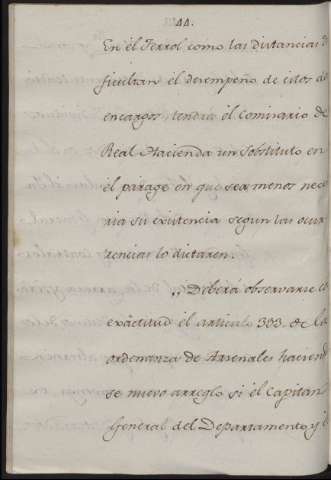 44.
En el Ferrol como las distancias d
ficultan el desempeño de estos d
encargos, tendrá el Comisario de
Real Hacienda un Sobstituto en
el parage en que sea menos nece
ria su existencia segun las ocur
rencias lo dictaren.
,, Deberá observarse c
exâctitud el articulo 303. de la
ordenanza de Arsenales haciend
se nuevo arreglo si el Capitan
General del Departamento, y